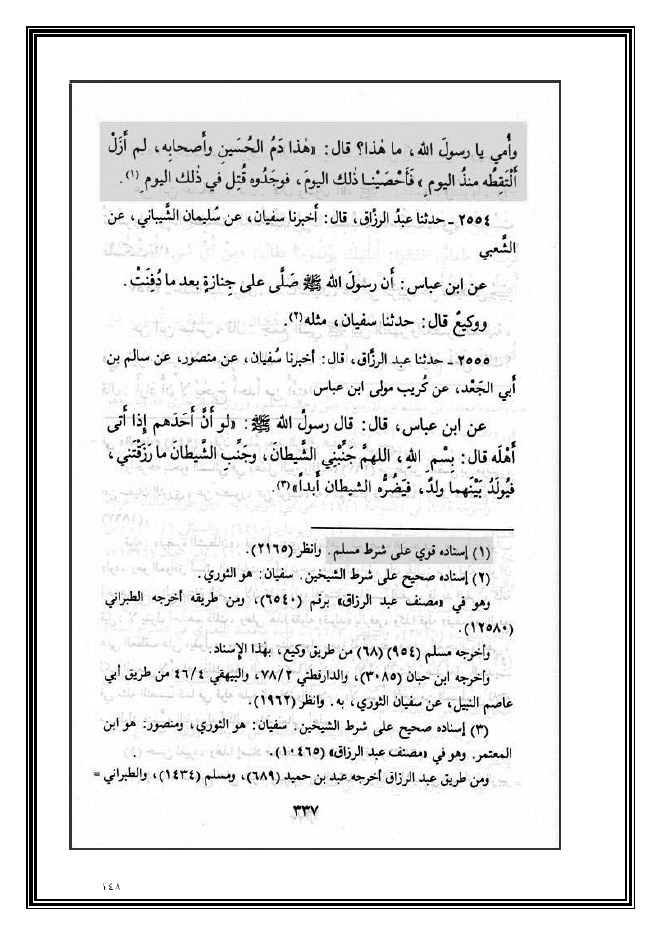 وأُمي يا رسولَ الله، ما هٰذا؟ قال: «هٰذا دَمُ الحُسَينِ وأَصحابِه، لم أَزَلْ
أَلْتَقِطُه منذُ اليومِ» فَأَحْصَيْنـا ذٰلك اليومَ، فوجَدُوه قُتِل في ذٰلك اليومِ (١).
٢٥٥٤ ـ حدثنا عبدُ الرزَّاق، قال: أَخبرنا سفيان، عن سُليمان الشَّيباني، عن
الشَّعبي
عن ابن عباس: أَن رسولَ الله ﷺ صَلَّى على جِنازةٍ بعد ما دُفِنَتْ.
ووكيعٌ قال: حدثنا سفيان، مثله(٢).
٢٥٥٥ ـ حدثنا عبد الرزَّاق، قال: أخبرنا سُفيان، عن منصور، عن سالم بن
أَبي الجَعْد، عن كُريب مولى ابن عباس
عن ابن عباس، قال: قال رسولُ الله ﷺ: «لو أَنَّ أَحَدَهم إِذا أَتى
أَهْلَه قال: بِسْمِ اللهِ، اللهمَّ جَنِّبْنِي الشَّيطانَ، وجَنِّبِ الشَّيطانَ ما رَزَقْتَني،
فيُولَدُ بَيْنَهما ولدٌ، فيَضُرُّه الشيطان أَبداً»(٣).
(١) إسناده قوي على شرط مسلم. وانظر (٢١٦٥).
(٢) إسناده صحيح على شرط الشيخين. سفيان: هو الثوري.
وهو في «مصنف عبد الرزاق» برقم (٦٥٤٠)، ومن طريقه أخرجه الطبراني
(١٢٥٨٠).
وأخرجه مسلم (٩٥٤) (٦٨) من طريق وكيع، بهذا الإسناد.
وأخرجه ابن حبان (٣٠٨٥)، والدارقطني ٧٨/٢، والبيهقي ٤٦/٤ من طريق أبي
عاصم النبيل، عن سفيان الثوري، به. وانظر (١٩٦٢).
(٣) إسناده صحيح على شرط الشيخين. سفيان: هو الثوري، ومنصور: هو ابن
المعتمر. وهو في «مصنف عبد الرزاق» (١٠٤٦٥).
ومن طريق عبد الرزاق أخرجه عبد بن حميد (٦٨٩)، ومسلم (١٤٣٤)، والطبراني =
٣٣٧
١٤٨